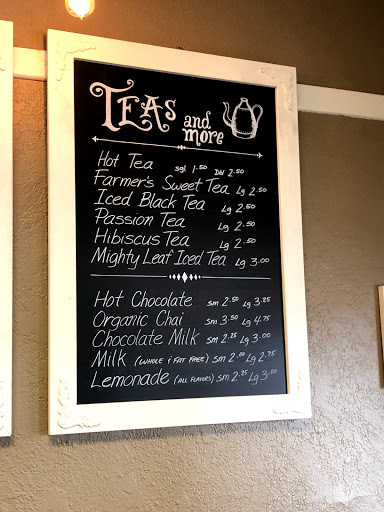 TEAS and more
Hot Tea sgl 1.50 Dbl 2.50
Farmer's Sweet Tea Lg 2.50
Iced Black Tea Lg 2.50
Passion Tea Lg 2.50
Hibiscus Tea Lg 2.50
Mighty Leaf Iced Tea Lg 3.00
Hot Chocolate sm 2.50 Lg 3.25
Organic Chai sm 3.50 Lg 4.75
Chocolate Milk sm 2.25 Lg 3.00
Milk (WHOLE & FAT FREE) sm 2.00 Lg 2.75
Lemonade (ALL FLAVORS) sm 2.25 Lg 3.00